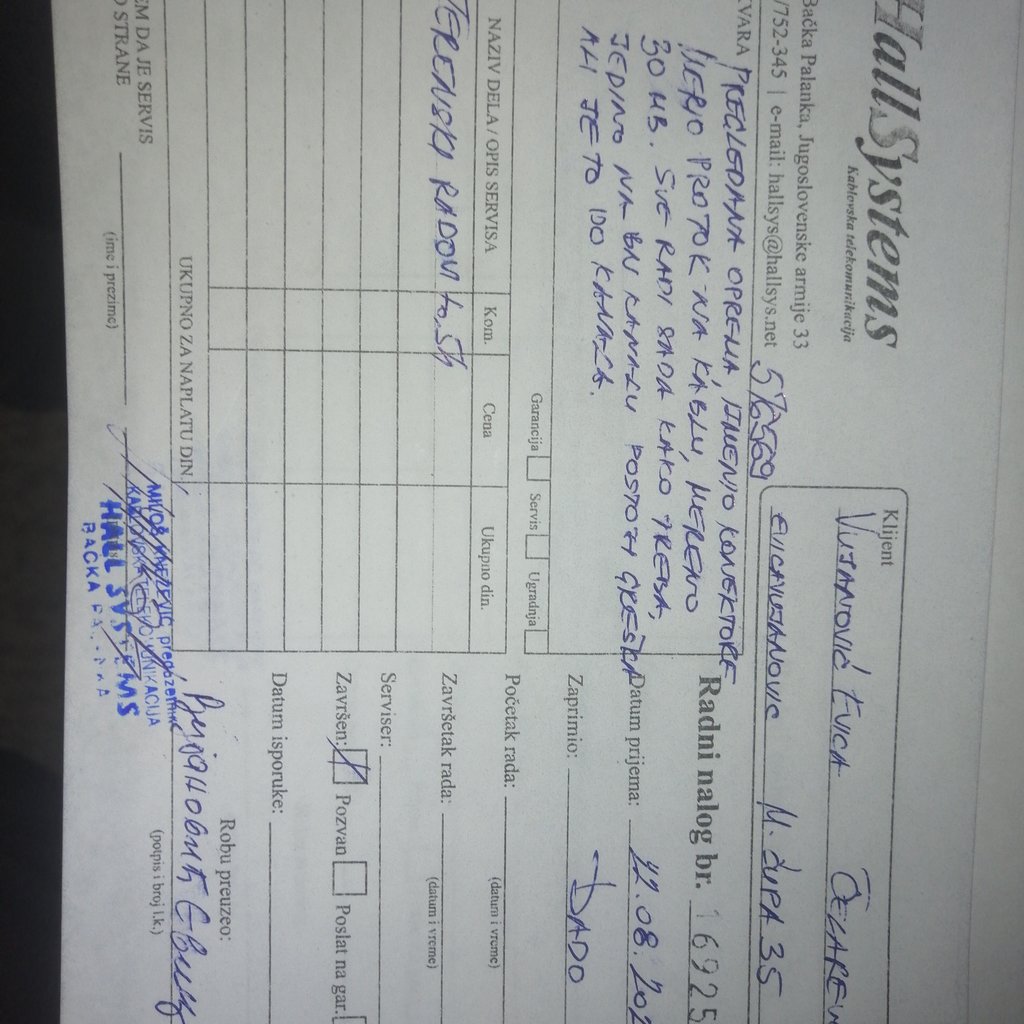 HallSystems
Kablovska telekomunikacija
Bačka Palanka, Jugoslovenske armije 33
/752-345 | e-mail: hallsys@hallsys.net
Klijent
VUJANOVIĆ EVICA
EVICAVUJANOVIC M. ČUPA 35
Radni nalog br. 16925
Datum prijema: 22.08.202
Zaprimio: DADO
KVARA PREGLEDANA OPREMA, KONEKTORE
MERIO PROTOK NA KABLU, MERENO
30 MB. SVE RADI SADA KAKO TREBA,
JEDINO NA BN KANALU POSTOJI GREŠKA
ALI JE TO DO KANALA.
Garancija Servis Ugradnja
NAZIV DELA / OPIS SERVISA Kom. Cena Ukupno din.
TERENSKI RADOVI
UKUPNO ZA NAPLATU DIN.
Početak rada:
(datum i vreme)
Završetak rada:
(datum i vreme)
Serviser:
Završen: Pozvan Poslat na gar.
Datum isporuke:
EM DA JE SERVIS
O STRANE
(ime i prezime)
MILOŠ KNEŽEVIĆ preduzetnik
KABLOVSKA TELEKOMUNIKACIJA
HALL SYSTEMS
BAČKA PALANKA
Robu preuzeo:
(potpis i broj l.k.)